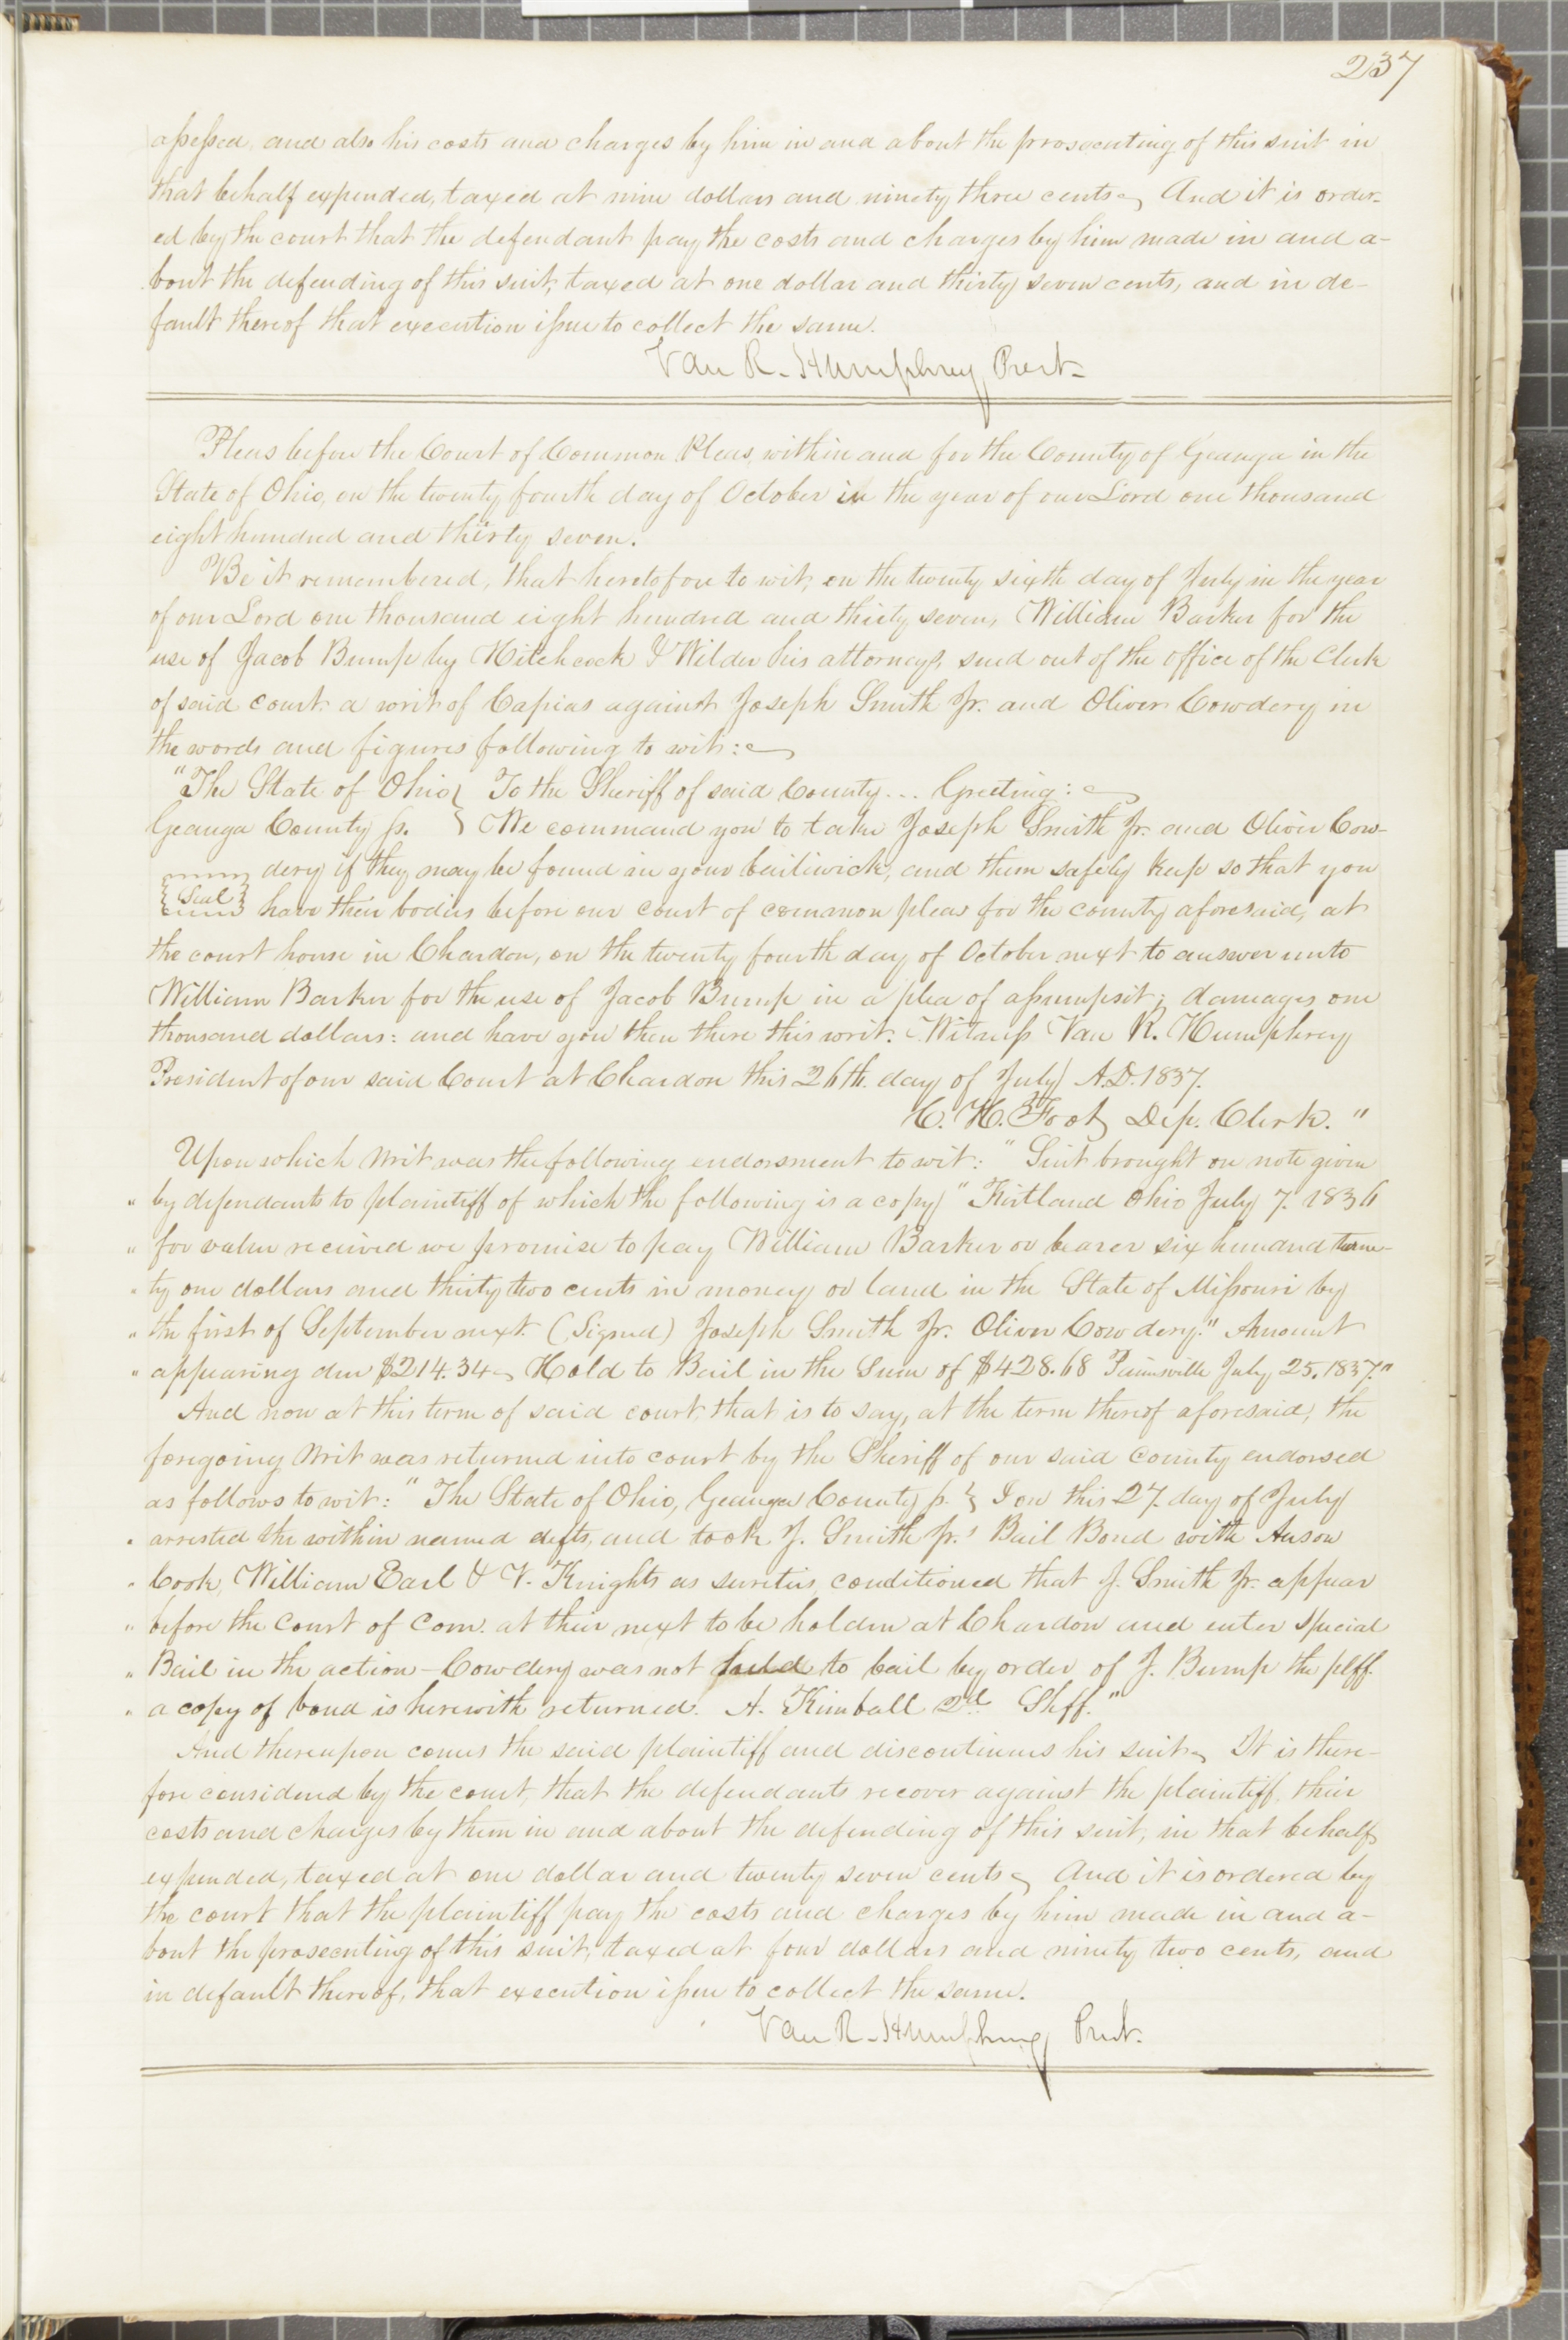 237
assessed, and also his costs and charges by him in and about the prosecuting of this suit in
that behalf expended, taxed at nine dollars and ninety three cents. And it is order-
ed by the court that the defendant pay the costs and charges by him made in and a-
bout the defending of this suit, taxed at one dollar and thirty seven cents, and in de-
fault thereof that execution issue to collect the same.
Van R. Humphrey, Prest-
Pleas before the Court of Common Pleas, within and for the County of Geauga in the
State of Ohio, on the twenty fourth day of October in the year of our Lord one thousand
eight hundred and thirty seven.
Be it remembered, that heretofore to wit, on the twenty sixth day of July in the year
of our Lord one thousand eight hundred and thirty seven, William Barker for the
use of Jacob Bump by Hitchcock & Wilder his attorneys, sued out of the office of the Clerk
of said court a writ of Capias against Joseph Smith Jr. and Oliver Cowdery in
the words and figures following to wit:
"The State of Ohio } To the Sheriff of said County... Greeting:
Geauga County ss. } We command you to take Joseph Smith Jr. and Oliver Cow-
dery if they may be found in your bailiwick, and them safely keep so that you
{Seal} have their bodies before our court of common pleas for the county aforesaid, at
the court house in Chardon, on the twenty fourth day of October next to answer unto
William Barker for the use of Jacob Bump in a plea of assumpsit; damages one
thousand dollars: and have you then there this writ. Witness Van R. Humphrey
President of our said Court at Chardon this 26th. day of July A.D. 1837.
C. H. Foot, Dep. Clerk. "
Upon which Writ was the following endorsment to wit: "Suit brought on note given
" by defendants to plaintiff of which the following is a copy "Kirtland Ohio July 7. 1836
" for value received we promise to pay William Barker or bearer six hundred twen-
" ty one dollars and thirty two cents in money or land in the State of Missouri by
" the first of September next. (Signed) Joseph Smith Jr. Oliver Cowdery." Amount
" appearing due $214.34 Hold to Bail in the Sum of $428.68 Painsville July 25. 1837."
And now at this term of said court, that is to say, at the term thereof aforesaid, the
foregoing Writ was returned into court by the Sheriff of our said county endorsed
as follows to wit: "The State of Ohio, Geauga County ss. } I on this 27. day of July
" arrested the within named defts, and took J. Smith jr.' Bail Bond with Anson
" Cook, William Earl & V. Knights as sureties, conditioned that J. Smith Jr. appear
" before the Court of Com. at their next to be holden at Chardon and enter special
" Bail in the action - Cowdery was not held to bail by order of J. Bump the plff.
" a copy of bond is herewith returned. A. Kimball 2d. Shff."
And thereupon comes the said plaintiff and discontinues his suit. It is there-
fore considered by the court, that the defendants recover against the plaintiff, their
costs and charges by them in and about the defending of this suit, in that behalf
expended, taxed at one dollar and twenty seven cents. And it is ordered by
the court that the plaintiff pay the costs and charges by him made in and a-
bout the prosecuting of this suit, taxed at four dollars and ninety two cents, and
in default thereof, that execution issue to collect the same.
Van R. Humphrey Prest.